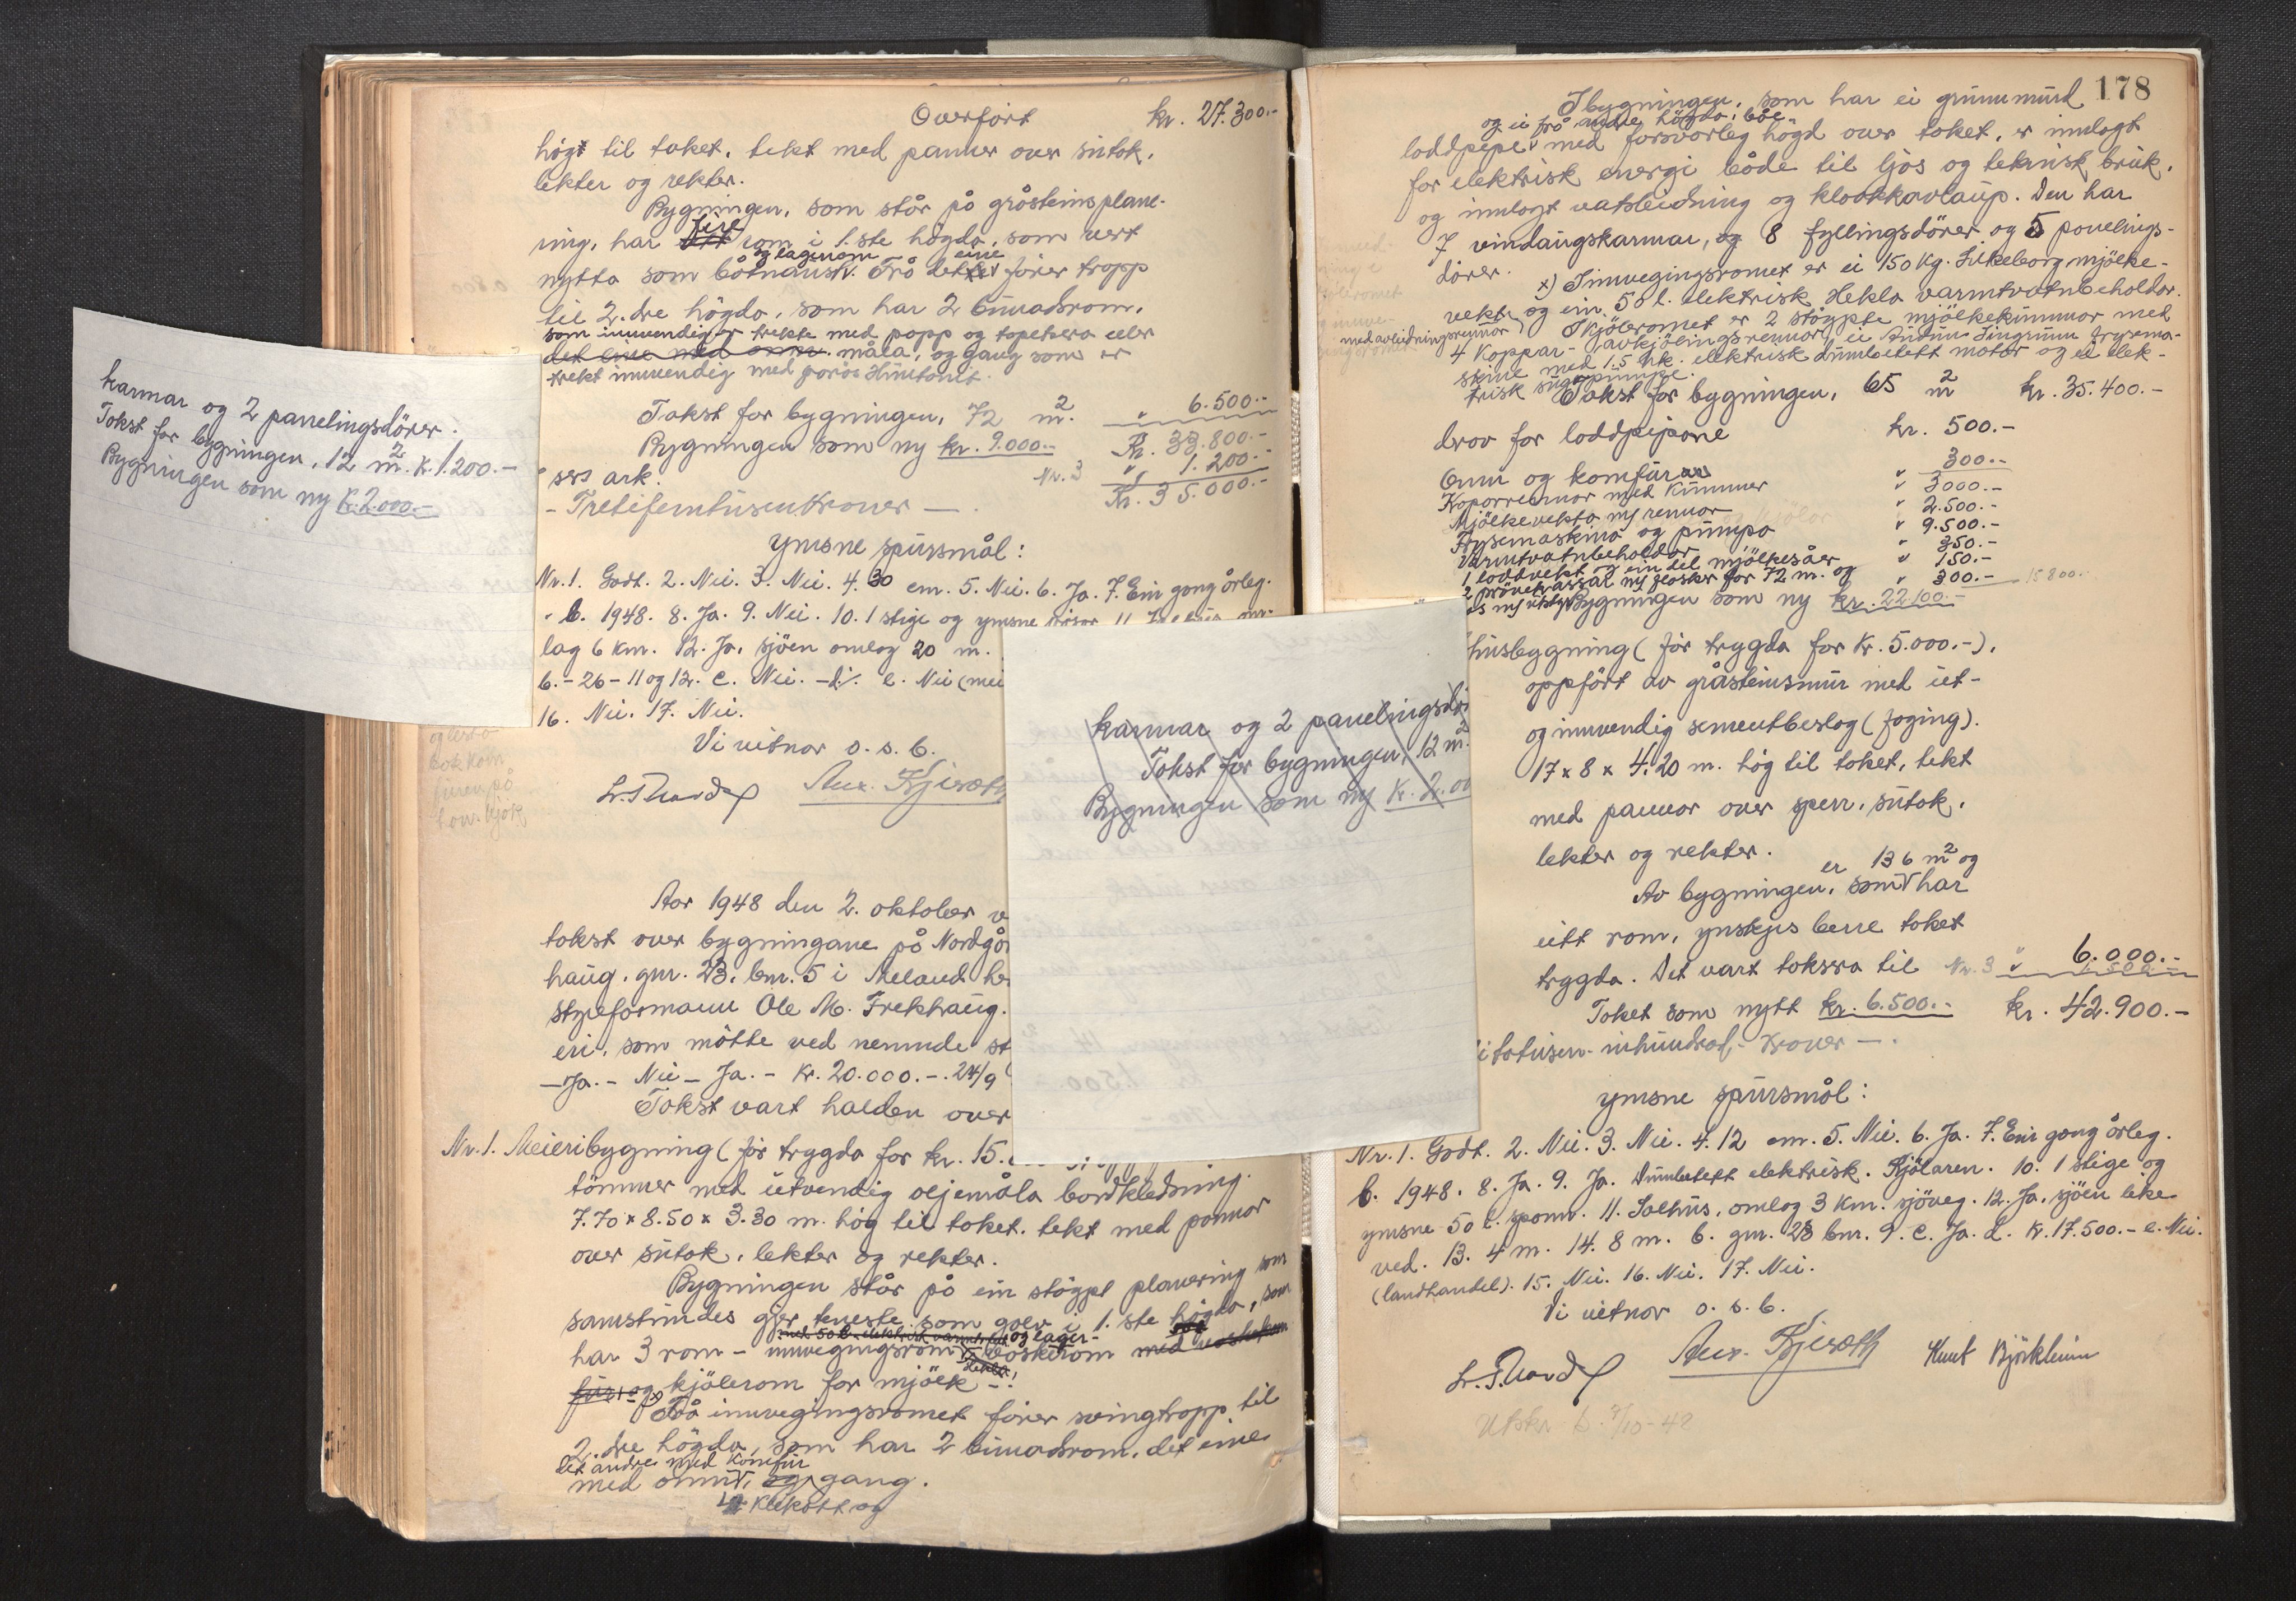 Overført kr. 27.300.-
høgt til taket, tekt med pannor over sutak,
lekter og rekter.
Bygningen, som står på gråsteinsplane-
ring, har rom i 1.ste høgda, som vert
og lagerrom eine
nytta som båtnaust. Frå det fører tropp
til 2.dre høgda, som har 2 buradsrom,
som innvendig er trekte med papp og tapetsera eller
måla, og gang som er
trekt innvendig med porøs Huntonit.
Takst for bygningen, 72 m². " 6.500.-
Bygningen som ny kr. 9.000.- Kr. 33.800.-
ses ark. Nr. 3 " 1.200.-
Kr. 35.000.-
- Trettifemtusenkroner -
Ymsne spursmål:
Nr. 1. Godt. 2. Nei. 3. Nei. 4. 30 em. 5. Nei. 6. Ja. 7. Ein gong årleg.
" b. 1948. 8. Ja. 9. Nei. 10. 1 stige og ymsne
lag 6 km. 12. Ja, sjøen omlag 20 m.
b. - 26 - 11 og 12. c. Nei. - d. /. e. Nei (mei
16. Nei. 17. Nei.
Vi vitnar o. s. b.
karmar og 2 panelingsdører.
Takst for bygningen, 12 m². K. 1.200.-
Bygningen som ny K. 2.000.-
Aar 1948 den 2. oktober v
takst over bygningane på Nordgår
haug, gnr. 23, bnr. 5 i Meland he
styreformann Ole M. Frekhaug.
eri, som møtte ved nemnde st
- Ja. - Nei - Ja. - Kr. 20.000.-. 24/9
Takst vart halden over
Nr. 1. Meieribygning (før trygda for kr. 15.
tømmer med utvendig oljemåla bordkledning.
7.70 x 8.50 x 3.30 m. høg til taket, tekt med pannor
over sutak, lekter og rekter.
Bygningen står på ein støypt planering som
samstundes gjer teneste som golv i 1.ste høgda, som
og lager-
har 3 rom - innvegingsrom, vaskerom med vaskekom
fur, og kjølerom for mjølk -.
Frå innvegingsromet fører svingtropp til
2.dre høgda, som har 2 buradsrom, det eine
det andre med komfur
med omn, og gang.
klekott og
karmar og 2 panelingsdø
Takst for bygningen, 12 m².
Bygningen som ny K. 2.00
178
I bygningen, som har ei grunnmurd
og ei frå andre høgda, båe
loddpipe med forsvarleg høgd over taket, er innlagt
for elektrisk energi både til ljos og teknisk bruk,
og innlagt vatsleidning og kloakkavlaup. Den har
7 vindaugskarmar, og 8 fyllingsdører og 5 panelings-
dører.
x) I innvegingsromet er ei 150 kg. Silkeborg mjølke-
vekt, og ein 50 l. elektrisk Hekla varmtvatnbeholdar.
I kjøleromet er 2 støypte mjølkekummor med
med avleidningsrennor
4 koppar- avkjølingsrennor, ei frysema-
skine med 1.5 hk. elektrisk dimbelett motor og ei elek-
trisk sugepumpe.
Takst for bygningen, 65 m² kr. 35.400.-
drav for loddpipone kr. 500.-
Omn og komfur " 300.-
Koparrennor med kummer " 3000.-
Mjølkevekta m/ rennor " 2.500.-
Frysemaskina og pumpa " 9.500.-
Varmtvatnbeholdar " 350.-
1 loddvekt og ein del mjølkesåer " 150.-
2 prøvekassar m/ glasker for 72 m. og " 300.- 15800.-
Bygningen som ny kr. 22.100.-
husbygning (før trygda for kr. 5.000.-),
oppført av gråsteinsmur med ut-
og innvendig sementbeslag (foging).
17 x 8 x 4.20 m. høg til taket, tekt
med pannor over sperr, sutak,
lekter og rekter.
er 136 m² og
Av bygningen, som har
eitt rom, ynskjes berre taket
trygda. Det vart taksra til Nr. 3 " 6.000.-
Taket som nytt kr. 6.500.- kr. 42.900.-
itotusen- nihundrad,- kroner -.
Ymsne spursmål:
Nr. 1. Godt. 2. Nei. 3. Nei. 4. 12 em. 5. Nei. 6. Ja. 7. Ein gong årleg.
b. 1948. 8. Ja. 9. Ja. Dimbelett elektrisk. Kjølaren. 10. 1 stige og
ymsne 50 l. spann. 11. Salhus, omlag 3 km. sjøveg. 12. Ja, sjøen like
ved. 13. 4 m. 14. 8 m. b. gnr. 23 bnr. 9. c. Ja. d. Kr. 17.500.- e. Nei.
(landhandel). 15. Nei. 16. Nei. 17. Nei.
Vi vitnar o. s. b.
Knut Bjørkheim